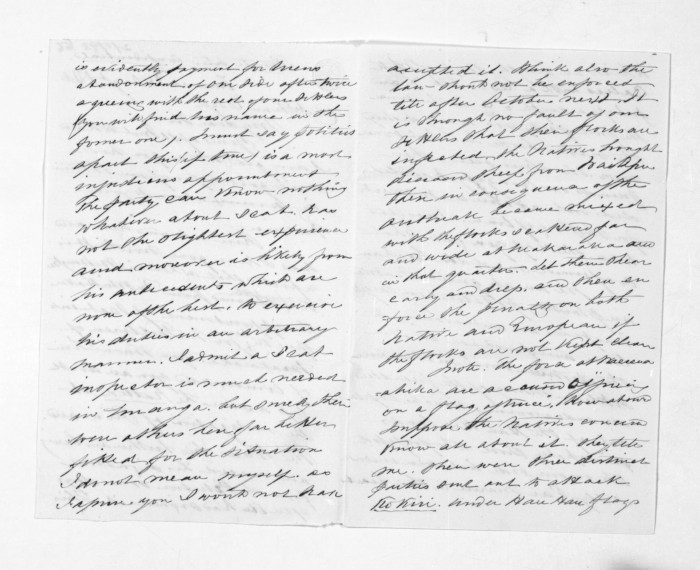 is evidently payment for Mens
abandonment of our side after twice
agreeing with the rest of our Settlers
(you will find his name in the
former one). I must say Politics
apart this (if true) is a most
injudicious appointment
The party can know nothing
whatever about Scab has
not the slightest experience
and moreover is likely from
his antecedents which are
none of the best, to exercise
his duties in an arbitrary
manner. I admit a Scab
inspector is much needed
in Turanga. but surely there
were others here far better
fitted for the situation
I do not mean myself. as
I assure you I would not have
accepted it. I think also the
law should not be enforced
till after October next. It
is through no fault of our
Settlers that their flocks are
infected. The Natives brought
diseased sheep from
these in consequence of the
outbreak became mixed
with the flocks scattered far
and wide at Makaraka and
in that quarter. Let them shear
early and dip, and then en
force the penalty on both
Native and European if
the flocks are not kept clean
Note. The fora at
are
on a flag of truce, how about
suppose the Natives concern
know all about it. they tell
me. there were three distinct
parties sent out to attack
Te Kiri. under Hau Hau flags